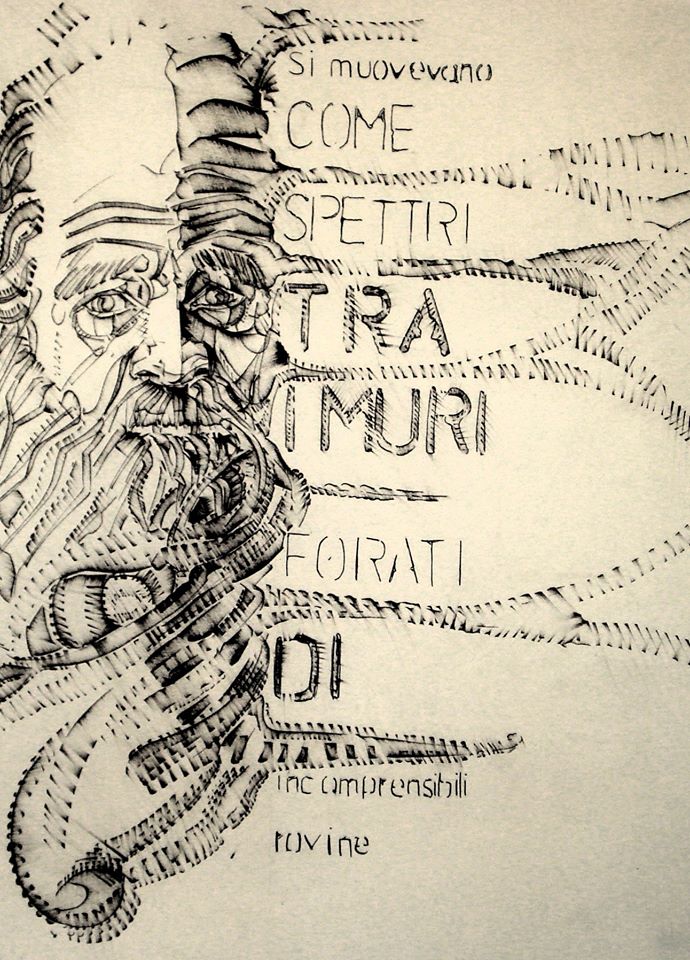 si muovevano
COME
SPETTIRI
TRA
I MURI
FORATI
DI
incomprensibili
rovine